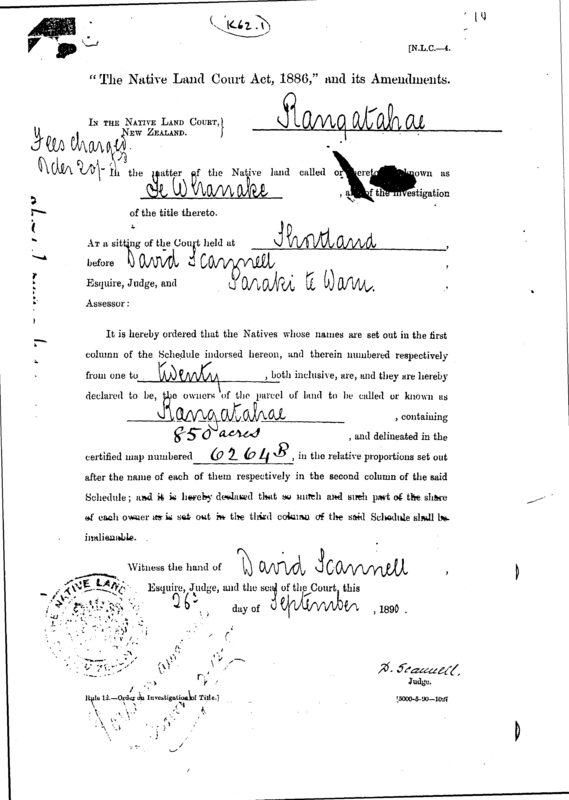 K62.1
14
[N.L.C.—4.
"The Native Land Court Act, 1886," and its Amendments.
IN THE NATIVE LAND COURT, NEW ZEALAND.
Rangatahae
Fees charged
Order 20/-
In the matter of the Native land called or known as
Te Whanake, of the investigation
of the title thereto.
AT a sitting of the Court held at Shortland,
before David Scannell,
Esquire, Judge, and Paraki te Waru.
Assessor:
It is hereby ordered that the Natives whose names are set out in the first
column of the Schedule indorsed hereon, and therein numbered respectively
from one to twenty, both inclusive, are, and they are hereby
declared to be, the owners of the parcel of land to be called or known as
Rangatahae, containing
850 acres, and delineated in the
certified map numbered 6264B, in the relative proportions set out
after the name of each of them respectively in the second column of the said
Schedule; and it is hereby declared that so much and such part of the share
of each owner as is set out in the third column of the said Schedule shall be
inalienable.
Witness the hand of David Scannell,
Esquire, Judge, and the seal of the Court, this
26th day of September, 1890.
THE NATIVE LAND
D. Scannell.
Judge.
Rule 12.—Order on Investigation of Title.]